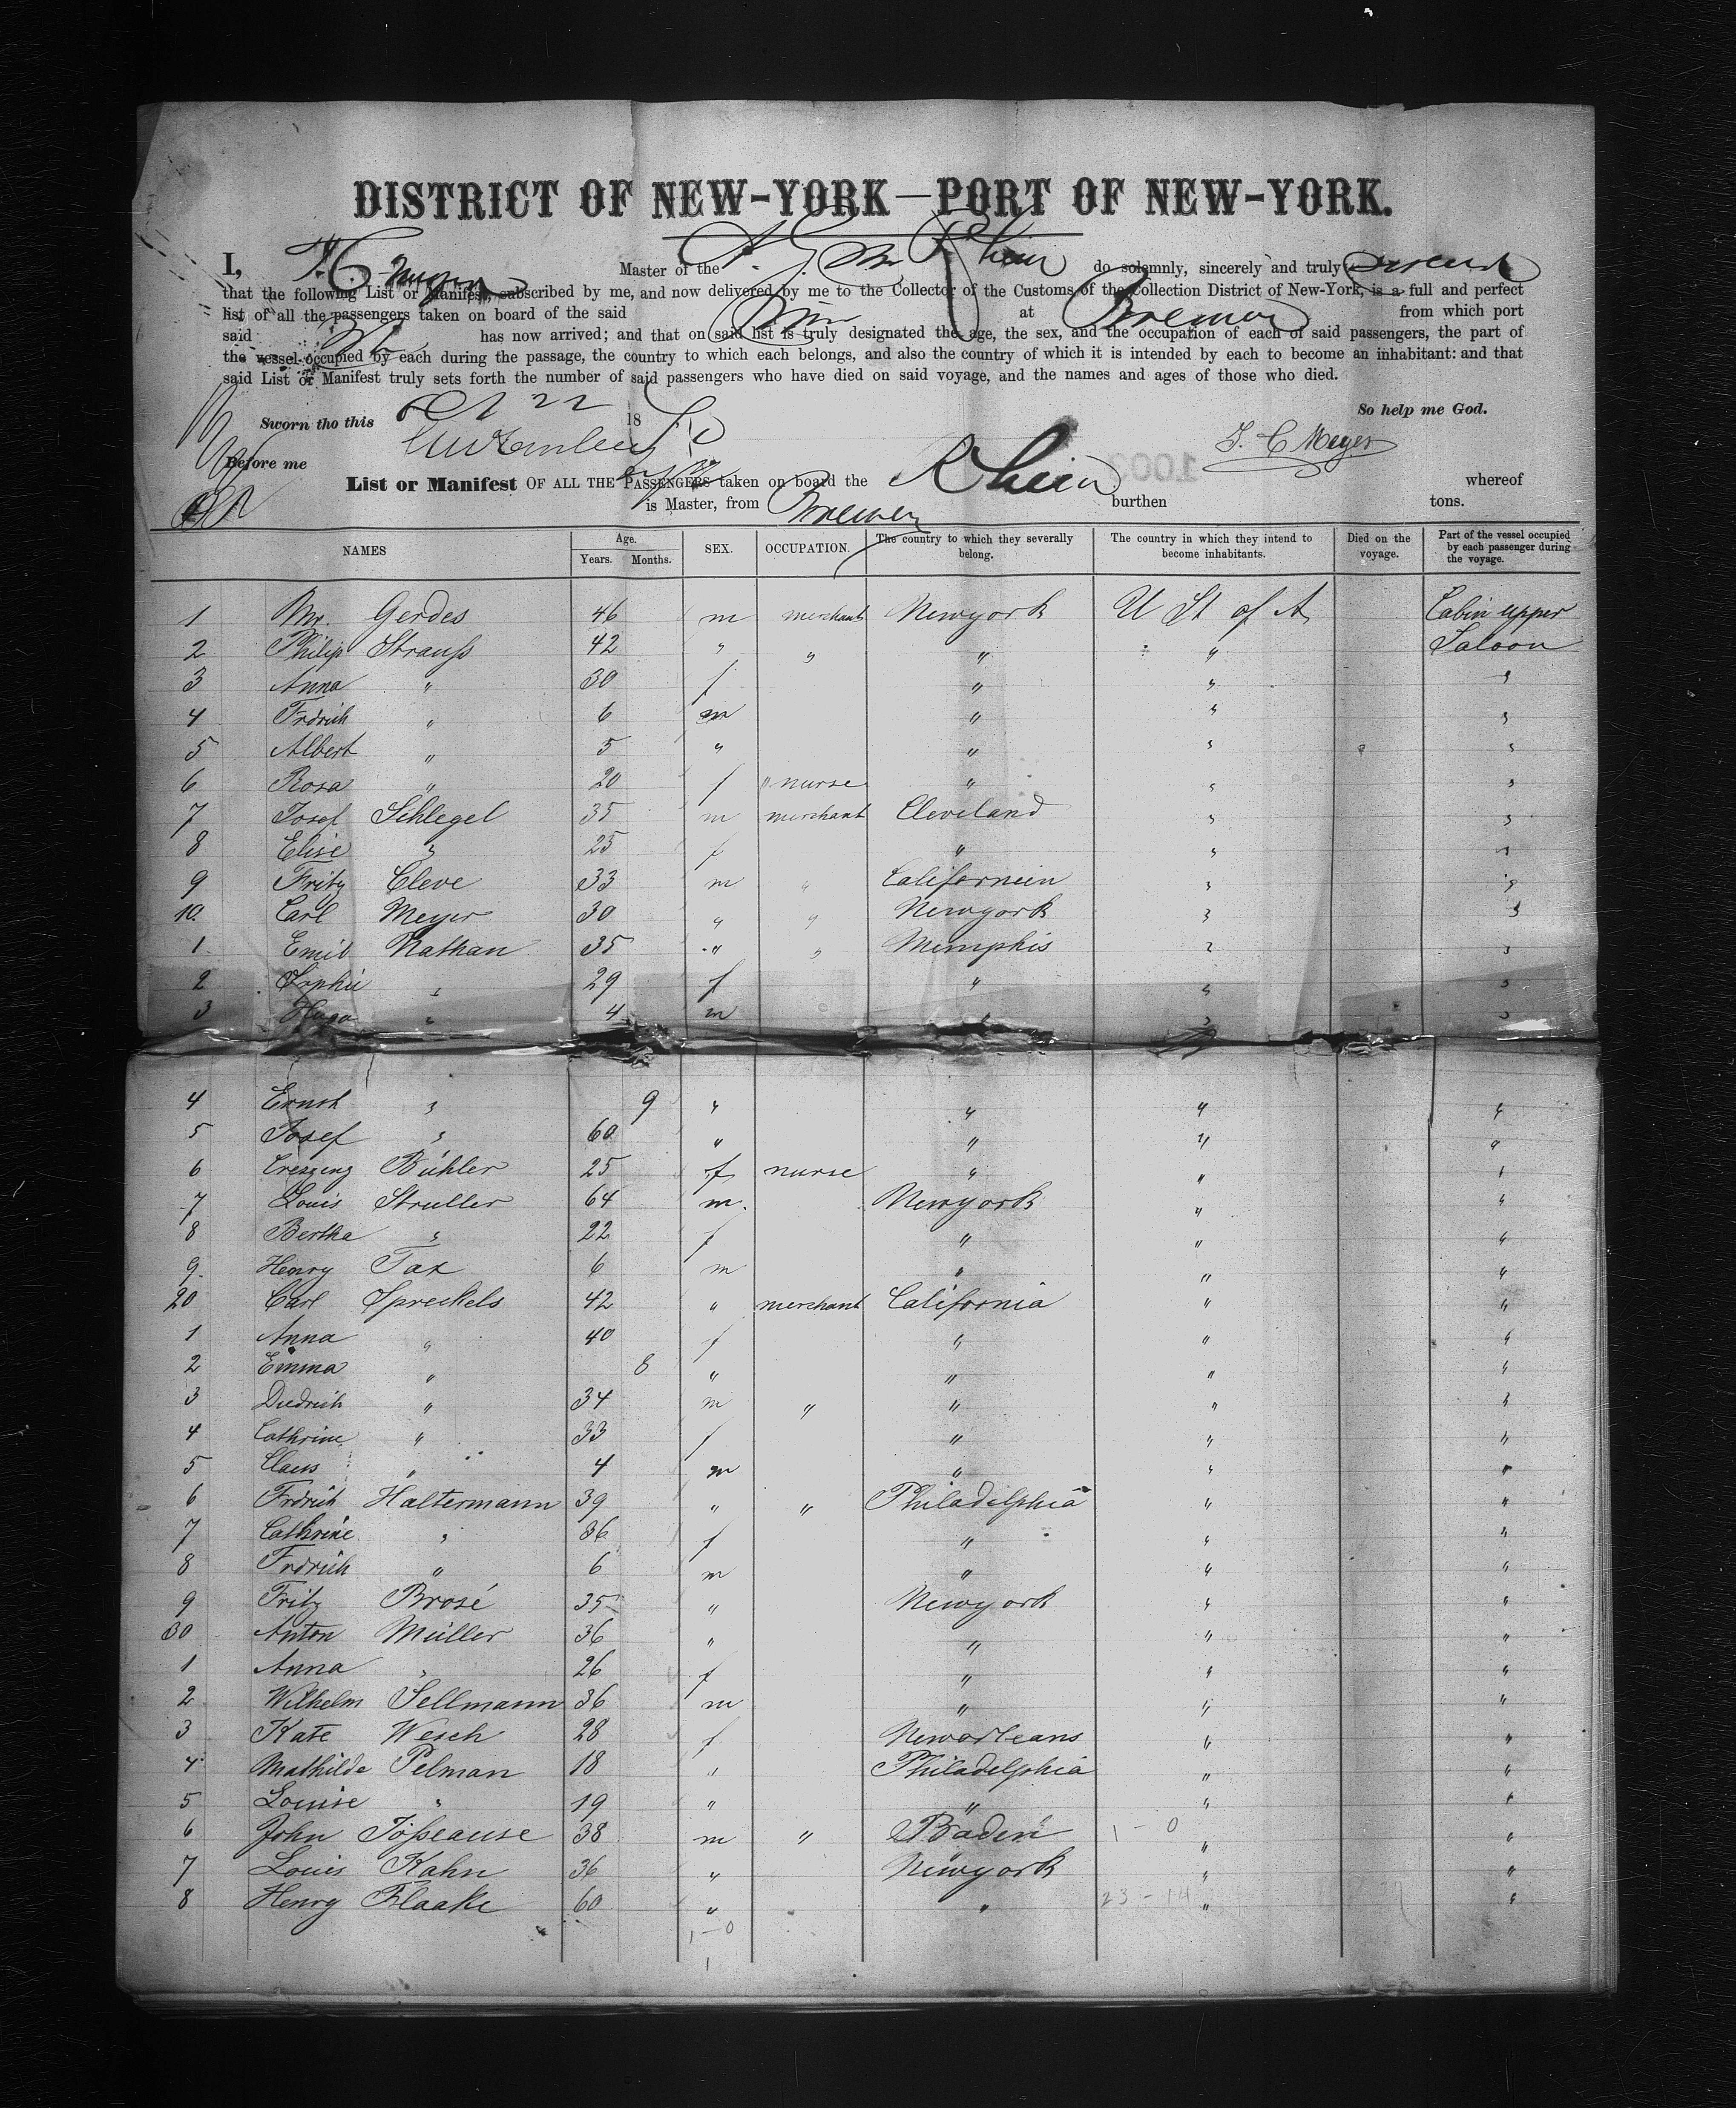 DISTRICT OF NEW-YORK—PORT OF NEW-YORK.
I, Master of the Rhein do solemnly, sincerely and truly
that the following List or Manifest, subscribed by me, and now delivered by me to the Collector of the Customs of the Collection District of New-York, is a full and perfect
list of all the passengers taken on board of the said at Bremen from which port
said has now arrived; and that on said list is truly designated the age, the sex, and the occupation of each of said passengers, the part of
the vessel occupied by each during the passage, the country to which each belongs, and also the country of which it is intended by each to become an inhabitant: and that
said List or Manifest truly sets forth the number of said passengers who have died on said voyage, and the names and ages of those who died.
Sworn tho this Oct 22 18 So help me God.
Before me J. C. Meyer
List or Manifest OF ALL THE PASSENGERS taken on board the Rhein whereof
is Master, from Bremen burthen tons.
NAMES Age. Years. Months. SEX. OCCUPATION. The country to which they severally belong. The country in which they intend to become inhabitants. Died on the voyage. Part of the vessel occupied by each passenger during the voyage.
1 Mr. Gerdes 46 m merchant Newyork U St of A Cabin upper
2 Philip Strauß 42 " " " " Saloon
3 Anna " 30 f " " "
4 Frdrich " 6 m " " "
5 Albert " 5 " " " "
6 Rosa " 20 f " nurse " " "
7 Josef Schlegel 35 m merchant Cleveland " "
8 Elise " 25 f " " "
9 Fritz Cleve 33 m " Californien " "
10. Carl Meyer 30 " " Newyork " "
1 Emil Nathan 35 " " Memphis " "
2 Sophie " 29 f " " "
3 Hugo " 4 m " " "
4 Ernst " 9 " " " "
5 Josef " 60 " " " "
6 Creszenz Bühler 25 f nurse " " "
7 Louis Struller 64 m. Newyork " "
8 Bertha " 22 f " " "
9. Henry Tax 6 m " " "
20 Carl Spreckels 42 " merchant California " "
1 Anna " 40 f " " "
2 Emma " 8 " " " "
3 Diedrich " 34 m " " " "
4 Cathrine " 33 f " " "
5 Claus " 4 m " " "
6 Frdrich Haltermann 39 " " Philadelphia " "
7 Cathrine " 36 f " " "
8 Frdrich " 6 m " " "
9 Fritz Brosé 35 " Newyork " "
30 Anton Müller 36 " " " "
1 Anna " 26 f " " "
2 Wilhelm Sellmann 36 m " " "
3 Kate Wesch 28 f Neworleans " "
4 Mathilde Pelman 18 " Philadelphia " "
5 Louise " 19 " " " "
6 John 38 m " Baden 1 - 0 " "
7 Louis Kahn 36 " Newyork " "
8 Henry Blaake 60 " " 23 - 14 " "
1 - 0
1